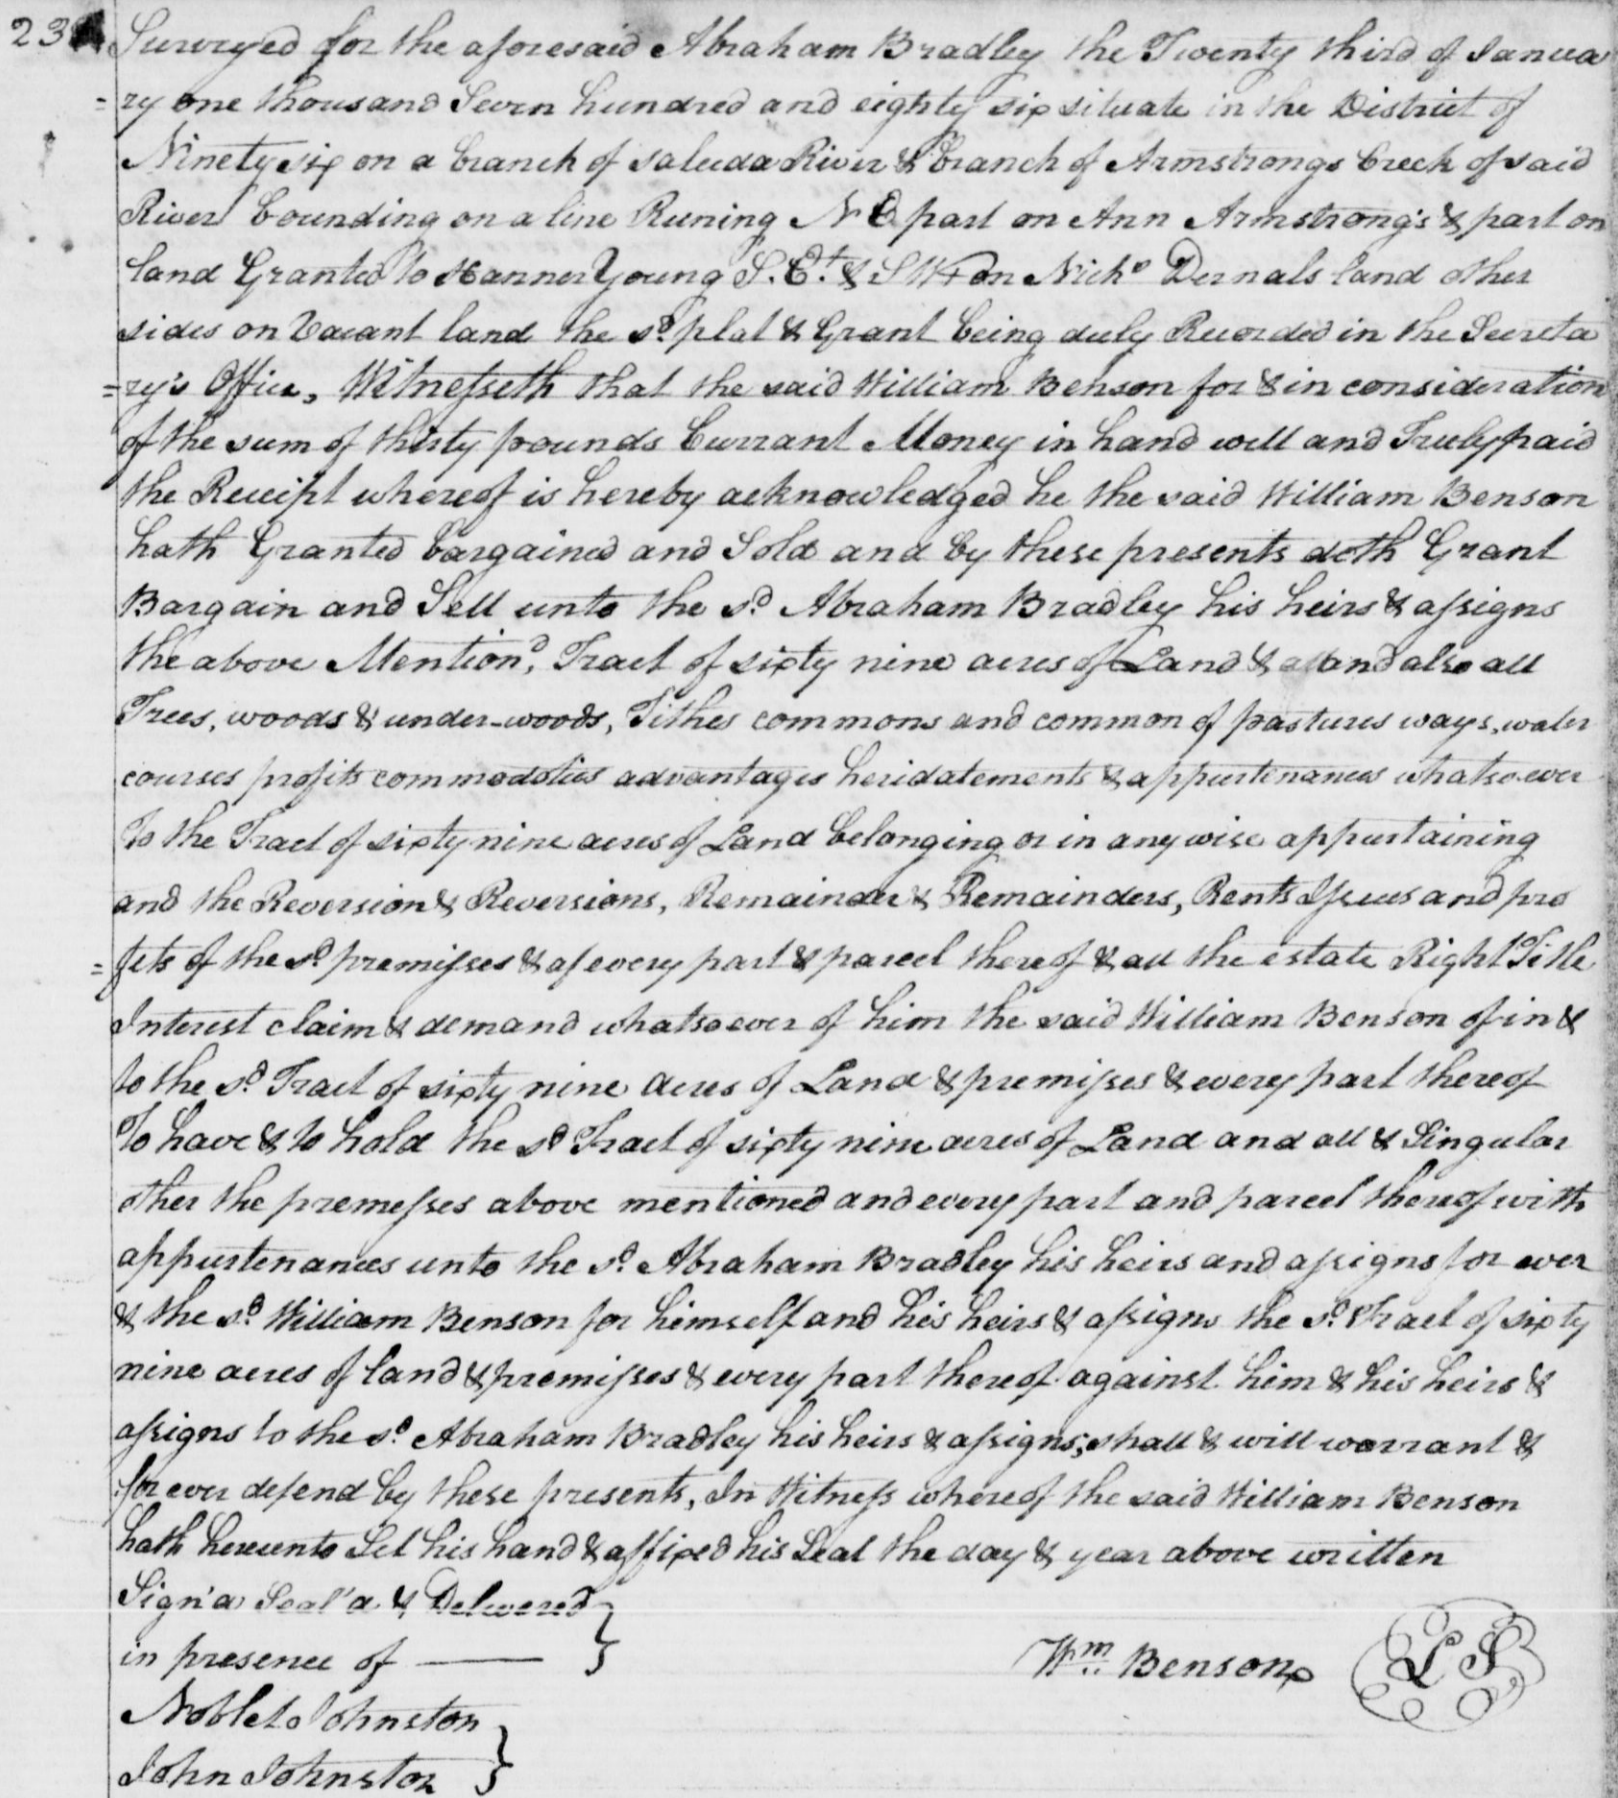 23
Surveyed for the aforesaid Abraham Bradley the Twenty third of Janua
=ry one thousand Seven hundred and eighty six situate in the District of
Ninety six on a branch of saluda River & branch of Armstrongs Creek of said
River bounding on a line Runing N E part on Ann Armstrong's & part on
land Granted to Hanner Young S. Et. & S W on Nicho Dernals land other
sides on Vacant land the sd. plat & Grant being duly Recorded in the Secreta
=ry's Office, Witnesseth that the said William Benson for & in consideration
of the sum of thirty pounds Currant Money in hand well and Truly paid
the Receipt whereof is hereby acknowledged he the said William Benson
hath Granted bargained and Sold and by these presents doth Grant
Bargain and Sell unto the sd Abraham Bradley his heirs & assigns
the above Mention'd, Tract of sixty nine acres of Land & and also all
Trees, woods & under-woods, Tithes commons and common of pastures ways, water
courses profits commodoties advantages heridatements & appurtenances whatso-ever
to the Tract of sixty nine acres of Land belonging or in any wise appurtaining
and the Reversion & Reversions, Remainder & Remainders, Rents Issues and pro
=fets of the sd. premisses & of every part & parcel thereof & all the estate Right Title
Interest claim & demand whatsoever of him the said William Benson of in &
to the sd. Tract of sixty nine acres of Land & premisses & every part thereof
To have & to hold the sd Tract of sixty nine acres of Land and all & Singular
other the premesses above mentioned and every part and parcel thereof with
appurtenances unto the sd. Abraham Bradley his heirs and assigns for ever
& the sd. William Benson for himself and his heirs & assigns the sd. Tract of sixty
nine acres of land & premisses & every part thereof against him & his heirs &
assigns to the sd. Abraham Bradley his heirs & assigns; shall & will warrant &
for ever defend by these presents, In Witness whereof the said William Benson
hath hereunto Set his hand & affixed his Seal the day & year above written
Sign'd Seal'd & Delivered }
in presence of —— } Wm. Benson L S
Noblet Johnston }
John Johnston }